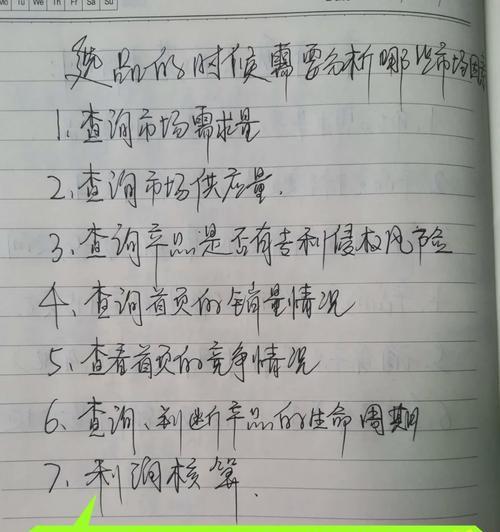 Mo Tu We Th Fr Sa Su
选品的时候需要分析哪些市场因素
1、查询市场需求量
2、查询市场供应量.
3、查询产品是否有专利侵权风险
4、查询首页的销量情况
5、查看首页的竞争情况
6、查询、判断产品的生命周期
7、利润核算.